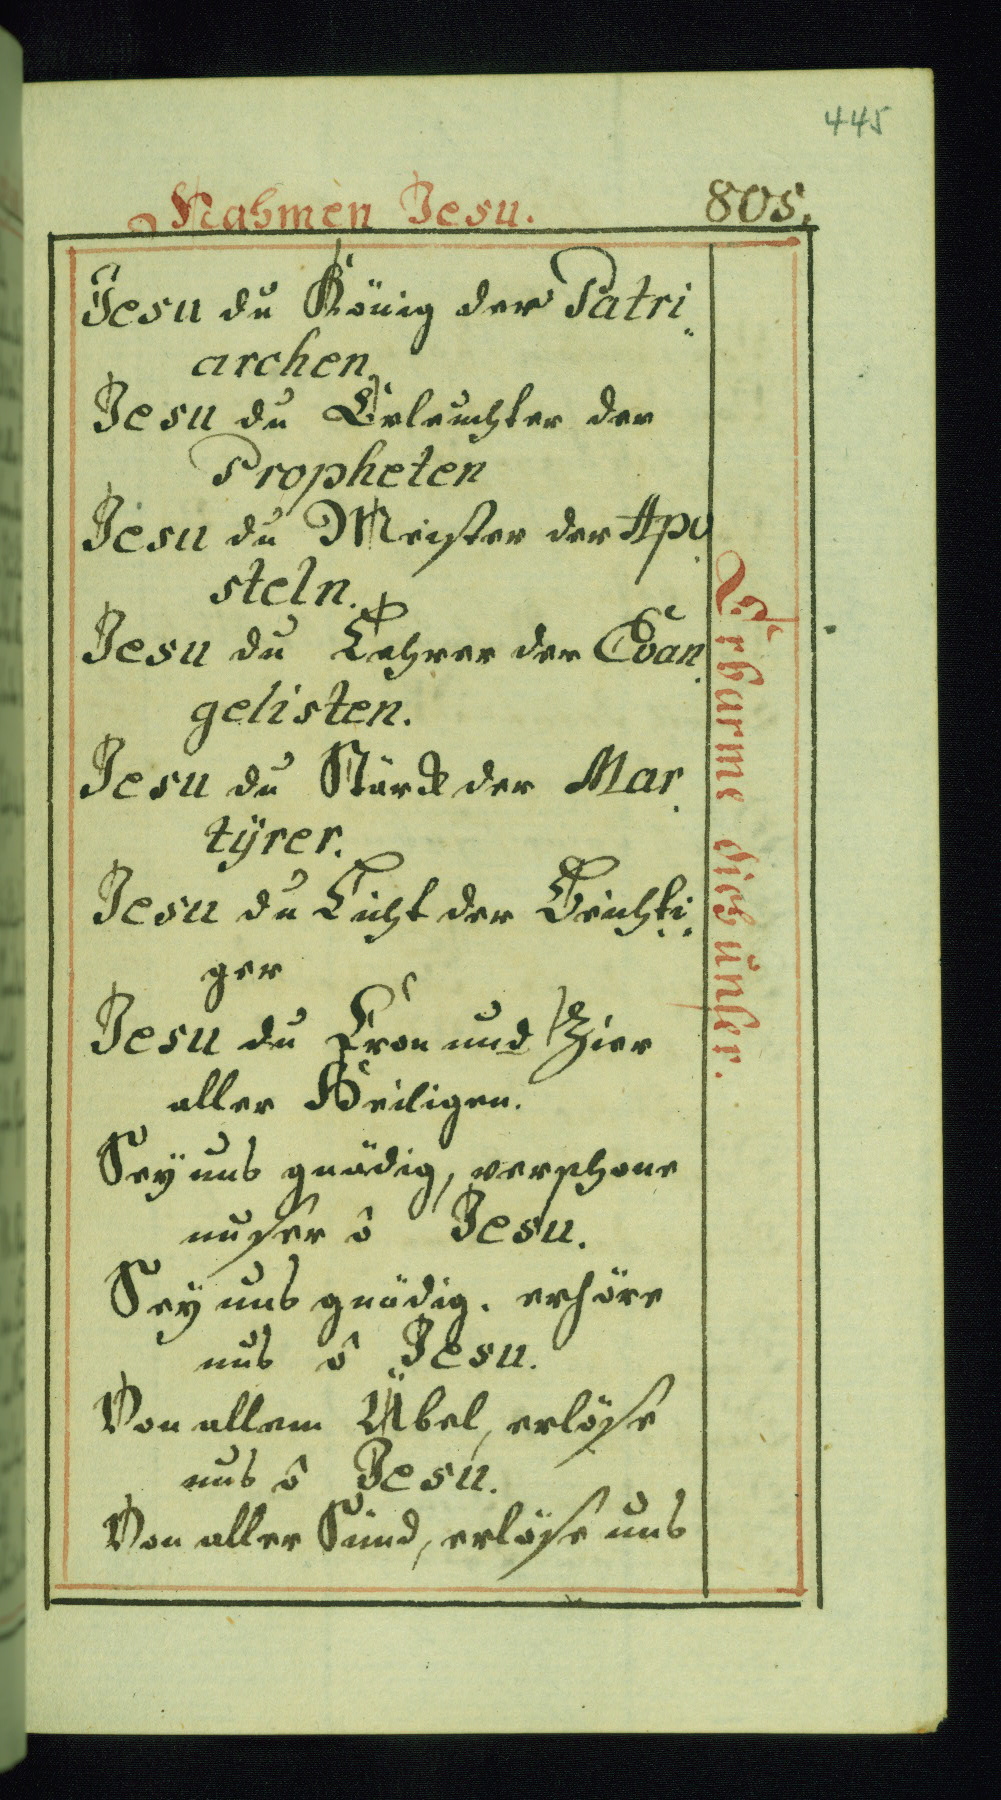 445
Nahmen Jesu. 805.
Jesu du König der Patri
archen
Jesu du Erleuchter der
Propheten
Jesu du Meister der Apo
steln.
Jesu du Lehrer der Evan
gelisten.
Jesu du Stärck der Mar
tÿrer.
Jesu du Licht der Beichti
ger
Jesu du Cron und Zier
aller Heiligen.
Seÿ uns gnädig, verschone
unser ô Jesu.
Seÿ uns gnädig. erhöre
uns ô Jesu.
Von allem Übel, erlöse
uns ô Jesu.
Von aller Sünd, erlöse uns
Erbarme dich unser.